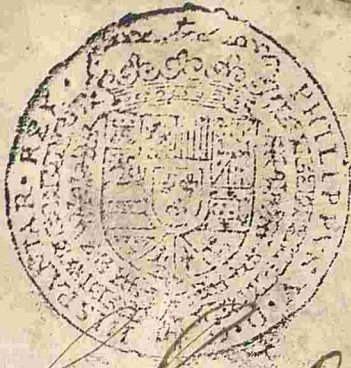 PHILIPPVS V D G HISPANIAR·REX